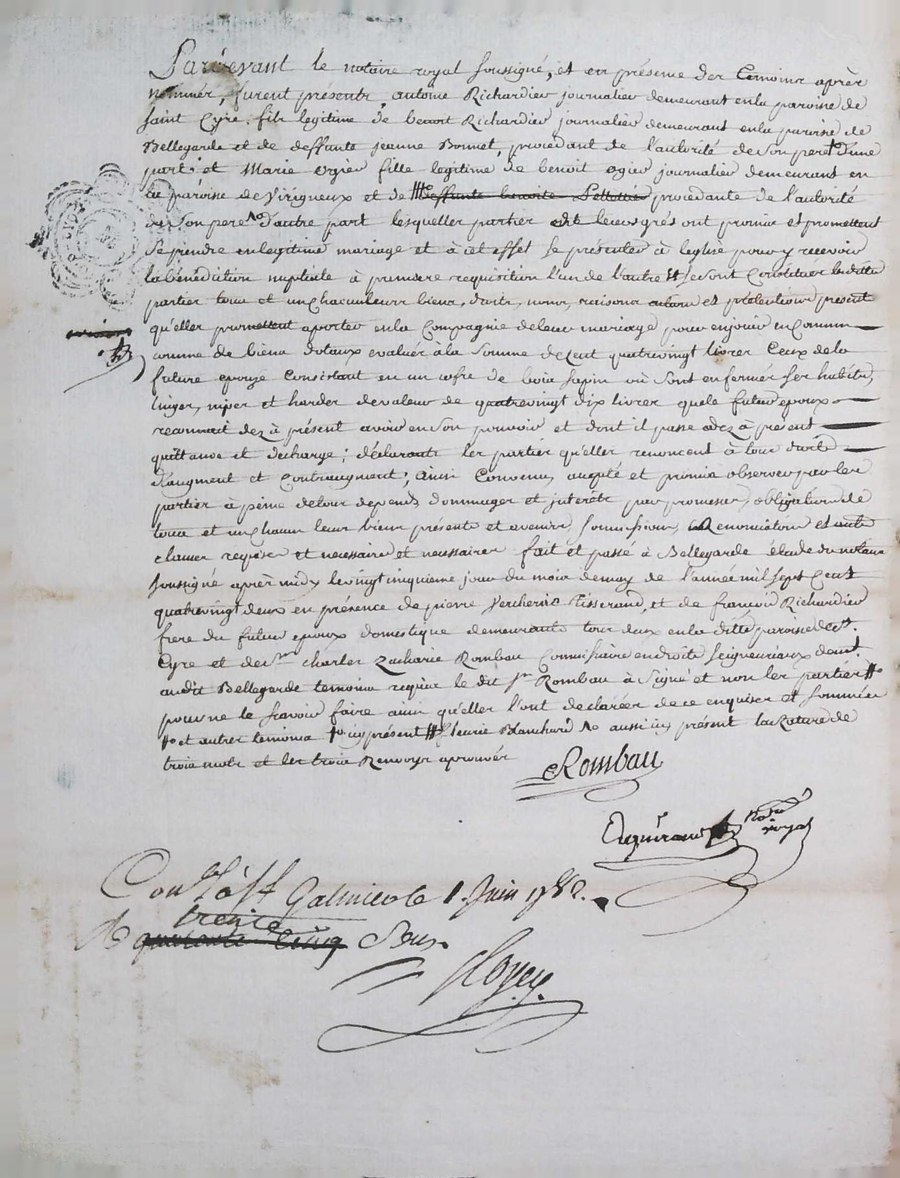 Pardevant le notaire royal soussigné, et en présence des temoins après
nommés, furent présents, antoine Richardier journalier demeurant en la paroise de
saint Cyre, fils legitime de benoit Richardier journalier demeurant en la paroise de
Bellegarde et de deffunte jeanne Bonnet, procedant de l'autorité de son pere d'une
part; et Marie ogier fille legitime de benoit ogier journalier demeurant en
la paroise de Virigneux et de deffunte benoite procedante de l'autorité
de son pere d'autre part lesquelles parties de leurs grés ont promis et promettent
se prendre en legitime mariage et à cet effet se présenter à leglise pour y recevoir
la bénédiction nuptiale à première requisition l'un de l'autre se sont Constitués lesdittes
parties tous et un chacun leurs biens, droits, noms, raisons actions et prétentions présents
qu'elles promettent aporter en la Compagnie de leur mariage pour en jouir en Commun
comme de biens dotaux evalués à la somme de Cent quatrevingt livres Ceux de la
future epouse Consistant en un cofre de bois sapin où sont enfermés ses habits,
linges, nipes et hardes de valeur de quatrevingt dix livres que le futur epoux
reconnait dez à présent avoir en son pouvoir et dont il passe dez à présent
quittance et decharge; déclarants les parties qu'elles renoncent à tous droits
d'augment et contraugment, ainsi Convenu, acepté et promis observer par les
partier à peine de tous depends dommages et intérêts par promesses, obligations de
tous et un chacun leurs biens présents et avenirs, soumissions, Renonciations et autres
clauses requises et necessaires et necessaires fait et passé à Bellegarde étude du notaire
soussigné après midy le vingt cinquieme jour du mois de may de l'année mil sept Cent
quatrevingt deux en présence de pierre Vercherin Tisserand, et de francois Richardier
frere du futur epoux domestique demeurants tous deux en la ditte paroise de st.
Cyre et de sr. charles Zacharie Rombau Commissaire en droits seigneuriaux demt.
audit Bellegarde temoins requis le dit sr. Rombau à signé et non les parties
pour ne le savoir faire ainsi qu'elles l'ont declarée de ce enquises et sommées
et autres temoins cy présent fleurie Blanchard aussi icy présent la Rature de
trois mots et les trois Renvoys aprouvés
Rombau
royal
Conlé à st Galmier le 1. Juin 1782.
trente
R quarante cinq Sous